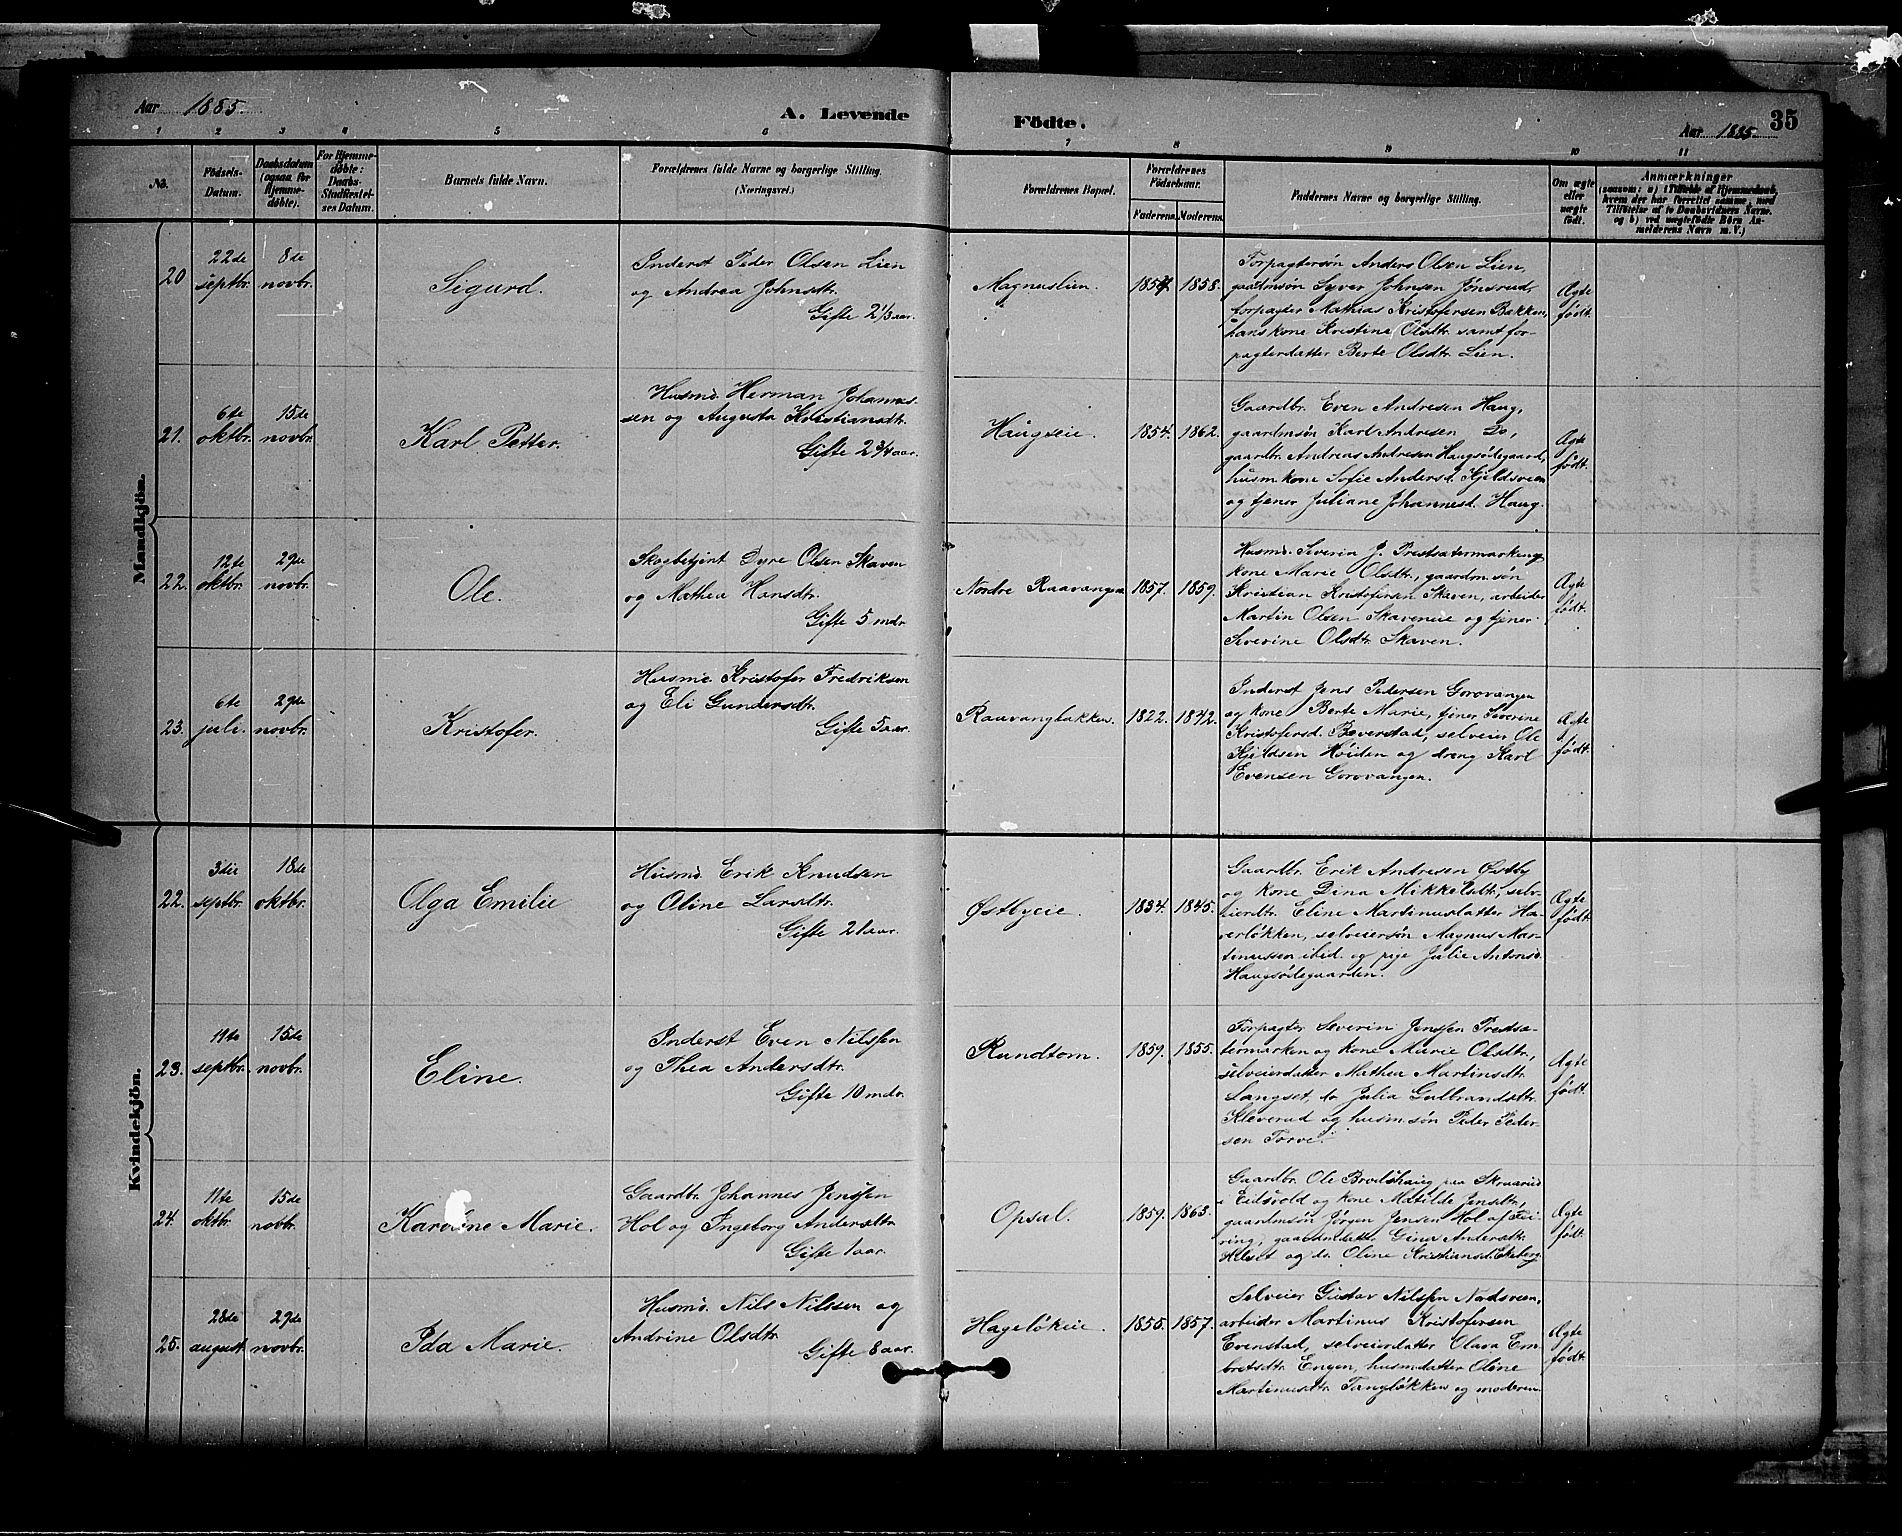 Aar 1885 A. Levende Födte. Aar 1885 35
1 2 3 4 5 6 7 8 9 10 11
No. Födsels-Datum. Daabsdatum (ogsaa for Hjemme-döbte). For Hjemme-döbte: Daabs-Stadfæstel-ses Datum. Barnets fulde Navn. Forældrenes fulde Navne og borgerlige Stilling. (Næringsvei.) Forældrenes Bopæl. Forældrenes Födselsaar. Faderens. Moderens. Faddernes Navne og borgerlige Stilling. Om ægte eller uægte født. Anmærkninger (saasom: a) i Tilfælde af Hjemmedaab, hvem der har forrettet samme, med Tilföielse af to Daabsvidners Navne, og b) ved uægtefödte Börn Anmelderens Navn m. V.)
Mandkjön.
20 22de septbr. 8de novbr. Sigurd.
Inderst Peder Olsen Lien
og Andrea Johnsdtr.
Gifte 2 1/3 aar.
Magnuslien. 1858.
Forpagtersøn Anders Olsen Lien,
gaardmsøn Syver Johnsen Jønsrud,
forpagter Mathias Kristofersen Bakken,
hans kone Kristine Olsdtr. samt for-
pagterdatter Berte Olsdtr. Lien.
Ægte født.
21. 6te oktbr. 15de novbr. Karl Petter.
Husmd Herman Johannes-
sen og Augusta Kristiansdtr.
Gifte 2 3/4 aar.
Haugseie. 1854. 1862.
Gaardbr. Even Andresen Haug,
gaardmsøn Karl Andresen Do,
gaardbr. Andreas Andresen Haugsødegaard,
husmkone Sofie Andersd. Kjeldsveen
og tjener Juliane Johannesd. Haug.
Ægte født.
22. 12te oktbr. 29de novbr. Ole.
Skogbetjent Dyre Olsen Skaven
og Mathea Hansdtr.
Gifte 5 mdr.
Nordre Raavangen 1857. 1859.
Husmd. Severin J. Prestsætermarken og
kone Marie Olsdtr., gaardm.søn
Kristian Kristofersen Skaven, arbeider
Martin Olsen Skaveneie og tjener
Severine Olsdtr. Skaven.
Ægte født.
23. 6te juli. 29de novbr. Kristofer.
Husmd Kristofer Fredriksen
og Eli Gundersdtr.
Gifte 5 aar.
Raavangbakken. 1822. 1842.
Inderst Jens Pedersen Gorovangen
og kone Berte Marie, tjener Severine
Kristofersd. Bæverstad, selveier Ole
Kjeldsen Høiden og dreng Karl
Evensen Gorovangen.
Ægte født.
Kvindekjön.
22. 3die septbr. 18de oktbr. Olga Emilie
Husmd Erik Knudsen
og Oline Larsdtr.
Gifte 21 aar.
Østbyeie. 1834. 1845.
Gaardbr. Erik Andresen Østby
og kone Dina Mikkelsdtr., selv-
eierdtr. Eline Martinusdatter Ha-
verløkken, selveiersøn Magnus Mar-
tinussen ibid. og pige Julie Antonsd.
Haugsødegaarden.
Ægte født.
23. 19te septbr. 15de novbr. Eline.
Inderst Even Nilssen
og Thea Andersdtr.
Gifte 10 mdr.
Rundtom. 1859. 1855.
Forpagter Severin Jenssen Prestsæ-
termarken og kone Marie Olsdtr.,
selveierdatter Mathea Martinsdtr.
Langset, do Julia Gulbrandsdtr.
Kleverud og husm.søn Peder Peder-
sen Torve.
Ægte født.
24. 11te oktbr. 15de novbr. Karoline Marie.
Gaardbr. Johannes Jenssen
Hol og Ingeborg Andersdtr.
Gifte 1 aar.
Opsal. 1859. 1863.
Gaardbr. Ole Brodshaug paa
i Eidsvold og kone Matilde Jensdtr.,
gaardmsøn Jørgen Jensen Hol af Fei-
ring, gaardmdatter Gina Andersdtr.
og do. Oline Kristiansd. Ekeberg.
Ægte født.
25. 28de august 29de novbr. Ida Marie.
Husmd. Nils Nilssen og
Andrine Olsdtr.
Gifte 8 aar.
Hageløkeie. 1855. 1857.
Selveier Gustav Nilssen Nordsveen,
arbeider Martinus Kristofersen
Evenstad, selveierdatter Olava Em-
bretsdtr. Engen, husmdatter Oline
Martinusdtr. Tangløkken og moderen.
Ægte født.